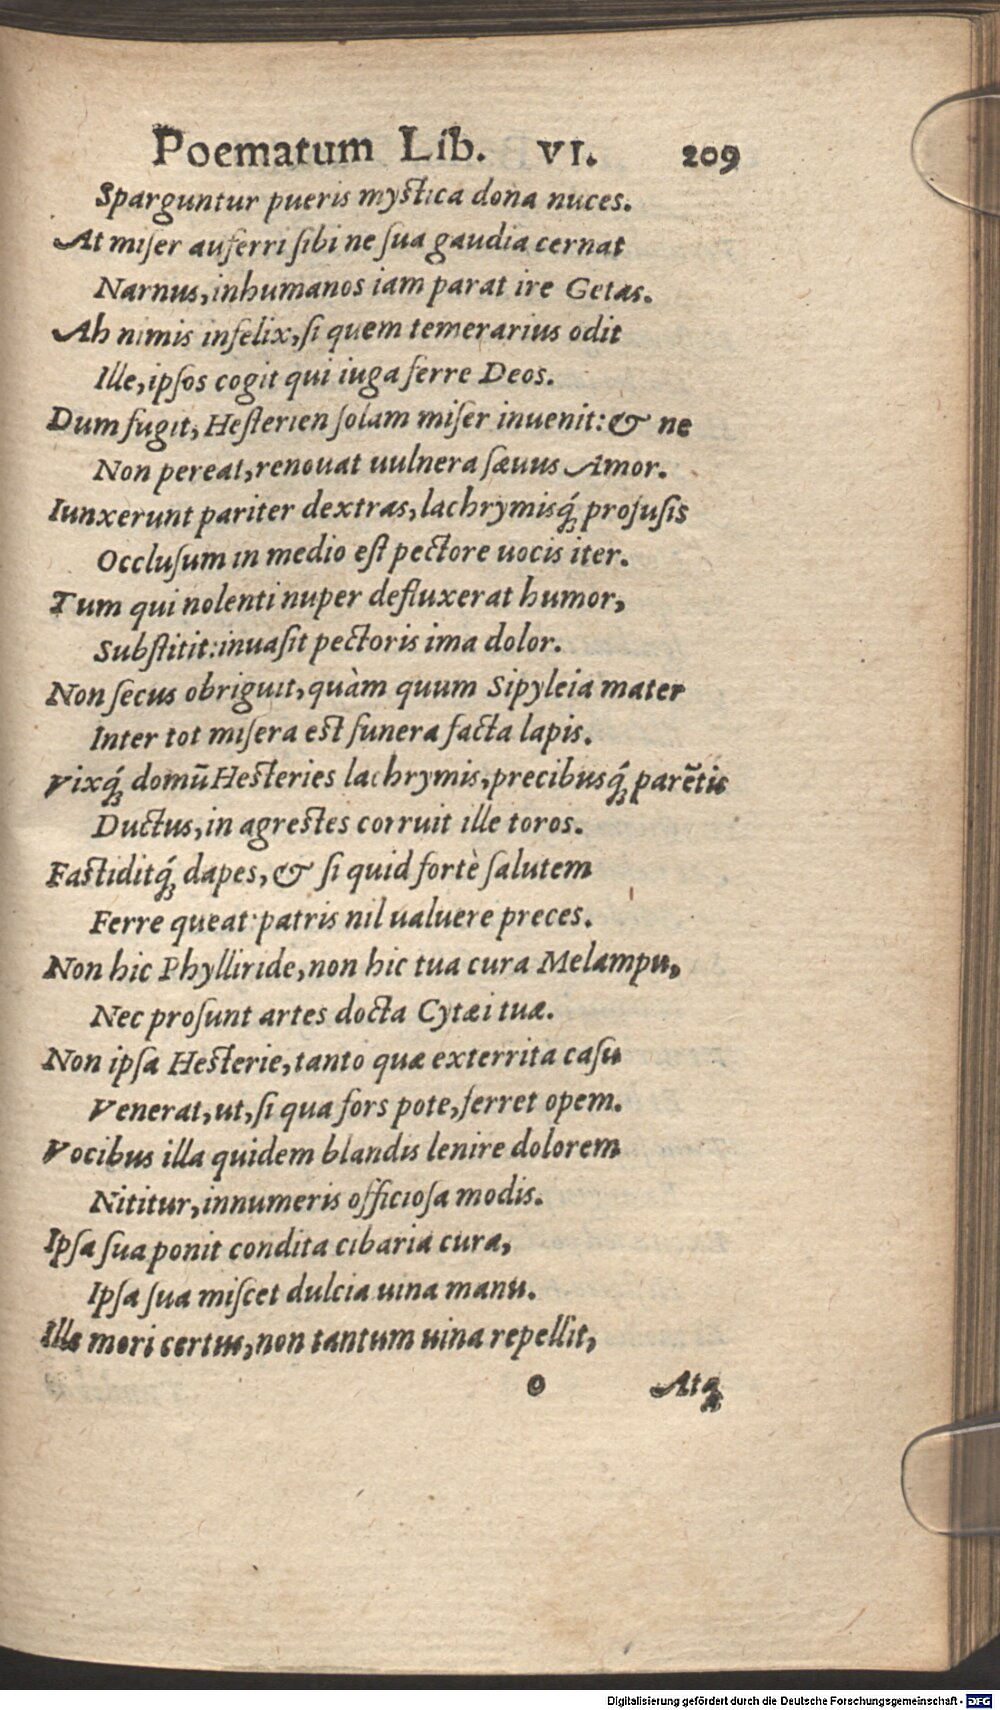 Poematum Lib. VI. 209
Sparguntur pueris mystica dona nuces.
At miſer auferri ſibi ne ſua gaudia cernat
Narnus, inhumanos iam parat ire Getas.
Ah nimis infelix, ſi quem temerarius odit
Ille, ipſos cogit qui iuga ferre Deos.
Dum fugit, Heſterien ſolam miſer inuenit: & ne
Non pereat, renouat uulnera ſæuus Amor.
Iunxerunt pariter dextras, lachrymisq́; profuſis
Occluſum in medio eſt pectore uocis iter.
Tum qui nolenti nuper defluxerat humor,
Subſtitit: inuaſit pectoris ima dolor.
Non ſecus obriguit, quàm quum Sipyleia mater
Inter tot miſera est funera facta lapis.
Vixq́; domū Hesteries lachrymis, precibusq́; parētis
Ductus, in agrestes corruit ille toros.
Fastiditq́; dapes, & ſi quid fortè ſalutem
Ferre queat: patris nil ualuere preces.
Non hic Phylliride, non hic tua cura Melampu,
Nec proſunt artes docta Cytæi tuæ.
Non ipſa Hesterie, tanto quæ exterrita caſu
Venerat, ut, ſi qua fors pote, ferret opem.
Vocibus illa quidem blandis lenire dolorem
Nititur, innumeris officioſa modis.
Ipſa ſua ponit condita cibaria cura,
Ipſa ſua miſcet dulcia uina manu.
Ille mori certus, non tantum uina repellit,
o Atq;
Digitalisierung gefördert durch die Deutsche Forschungsgemeinschaft - DFG